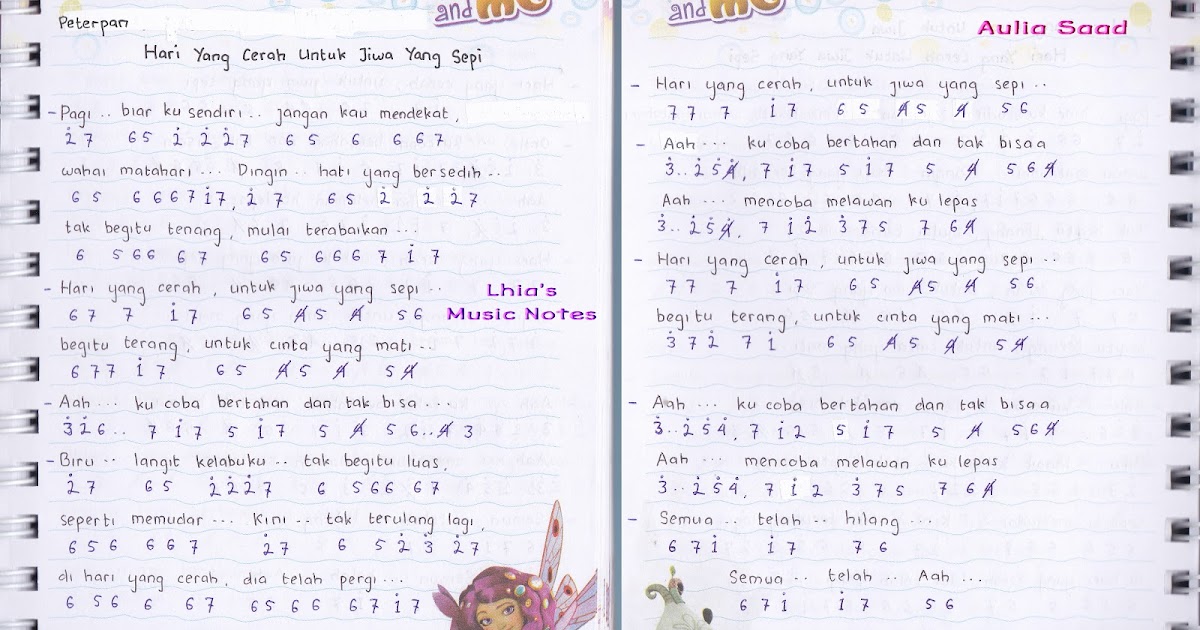 and me
Peterpan
Hari Yang Cerah Untuk Jiwa Yang Sepi
- Pagi .. biar ku sendiri .. jangan kau mendekat,
2̇ 7 6 5 1̇ 2̇ 2̇ 7 6 5 6 6 6 7
wahai matahari ... Dingin .. hati yang bersedih ..
6 5 6 6 6 7 1̇ 7, 2̇ 7 6 5 2̇ 2̇ 2̇ 7
tak begitu tenang, mulai terabaikan ...
6 5 6 6 6 7 6 5 6 6 6 7 1̇ 7
- Hari yang cerah, untuk jiwa yang sepi ..
6 7 7 1̇ 7 6 5 4̸ 5 4̸ 5 6
Lhia's
Music Notes
begitu terang, untuk cinta yang mati ...
6 7 7 1̇ 7 6 5 4̸ 5 4̸ 5 4̸
- Aah ... ku coba bertahan dan tak bisa ...
3̇ 2̇ 6 .. 7 1̇ 7 5 1̇ 7 5 4̸ 5 6 .. 4̸ 3
- Biru .. langit kelabuku .. tak begitu luas,
2̇ 7 6 5 2̇ 2̇ 2̇ 7 6 5 6 6 6 7
seperti memudar ... Kini .. tak terulang lagi,
6 5 6 6 6 7 2̇ 7 6 5 2̇ 3̇ 2̇ 7
di hari yang cerah, dia telah pergi ...
6 5 6 6 6 7 6 5 6 6 6 7 1̇ 7
and me
Aulia Saad
- Hari yang cerah, untuk jiwa yang sepi ..
7 7 7 1̇ 7 6 5 4̸ 5 4̸ 5 6
- Aah ... ku coba bertahan dan tak bisaa
3̇ .. 2̇ 5̇ 4̸̇, 7 1̇ 7 5 1̇ 7 5 4̸ 5 6 4̸
Aah ... mencoba melawan ku lepas
3̇ .. 2̇ 5̇ 4̸̇, 7 1̇ 2̇ 3̇ 7 5 7 6 4̸
- Hari yang cerah, untuk jiwa yang sepi ..
7 7 7 1̇ 7 6 5 4̸ 5 4̸ 5 6
begitu terang, untuk cinta yang mati ...
3̇ 7 2̇ 7 1̇ 6 5 4̸ 5 4̸ 5 4̸
- Aah ... ku coba bertahan dan tak bisaa
3̇ .. 2̇ 5̇ 4̇, 7 1̇ 2 5 1̇ 7 5 4̸ 5 6 4̸
Aah ... mencoba melawan ku lepas
3̇ .. 2̇ 5̇ 4̇, 7 1̇ 2 3̇ 7 5 7 6 4̸
- Semua .. telah .. hilang ...
6 7 1̇ 1̇ 7 7 6
Semua .. telah .. Aah ...
6 7 1̇ 1̇ 7 5 6